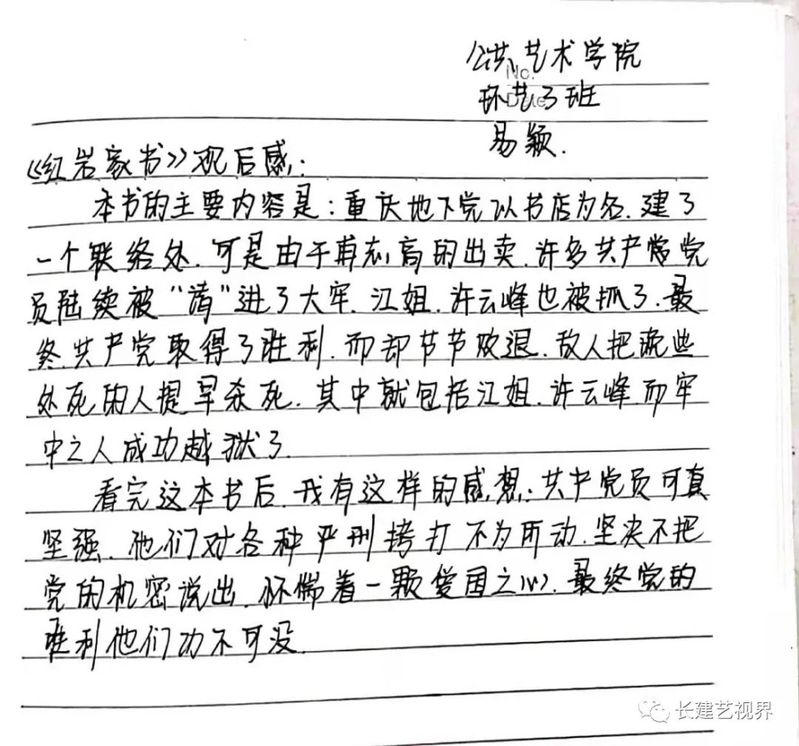 公共艺术学院
No.
环艺3班
Date
易颖.
《红岩家书》观后感:
本书的主要内容是:重庆地下党以书店为名.建了
一个联络处.可是由于甫志高的出卖.许多共产党党
员陆续被“请”进了大牢.江姐.许云峰也被抓了.最
终.共产党取得了胜利.而却节节败退.敌人把说些
处死的人提早杀死.其中就包括江姐.许云峰.而牢
中之人成功越狱了.
看完这本书后.我有这样的感想:共产党员可真
坚强.他们对各种严刑拷打不为所动.坚决不把
党的机密说出.怀惴着一颗爱国之心.最终党的
胜利他们功不可没.
长建艺视界